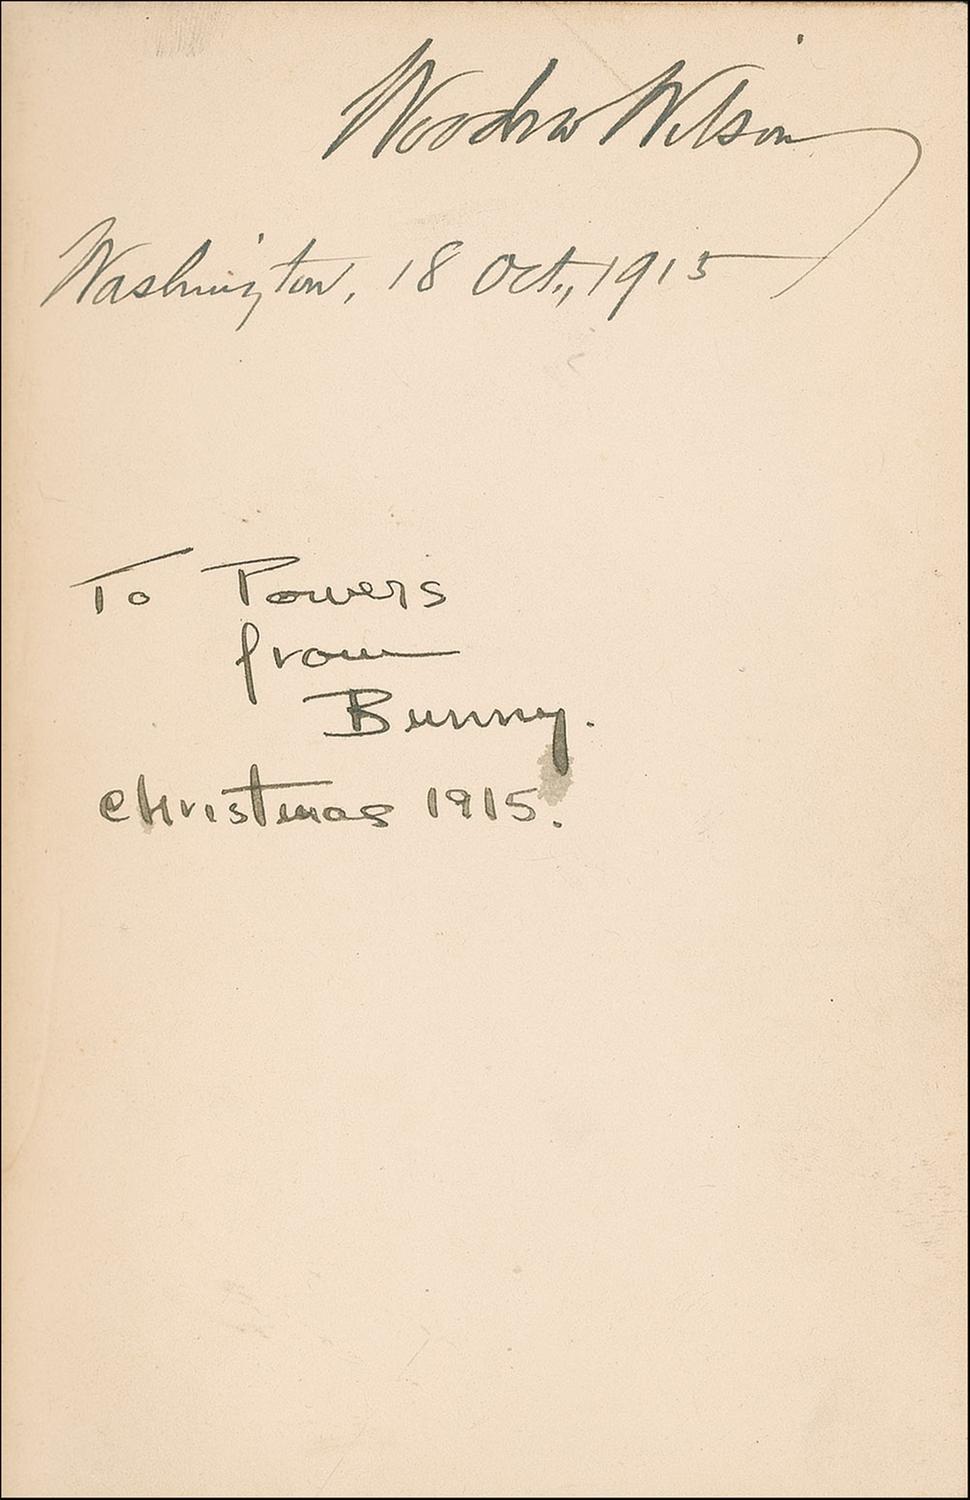 Woodrow Wilson
Washington, 18 Oct., 1915
To Powers
from
Bunny.
Christmas 1915.